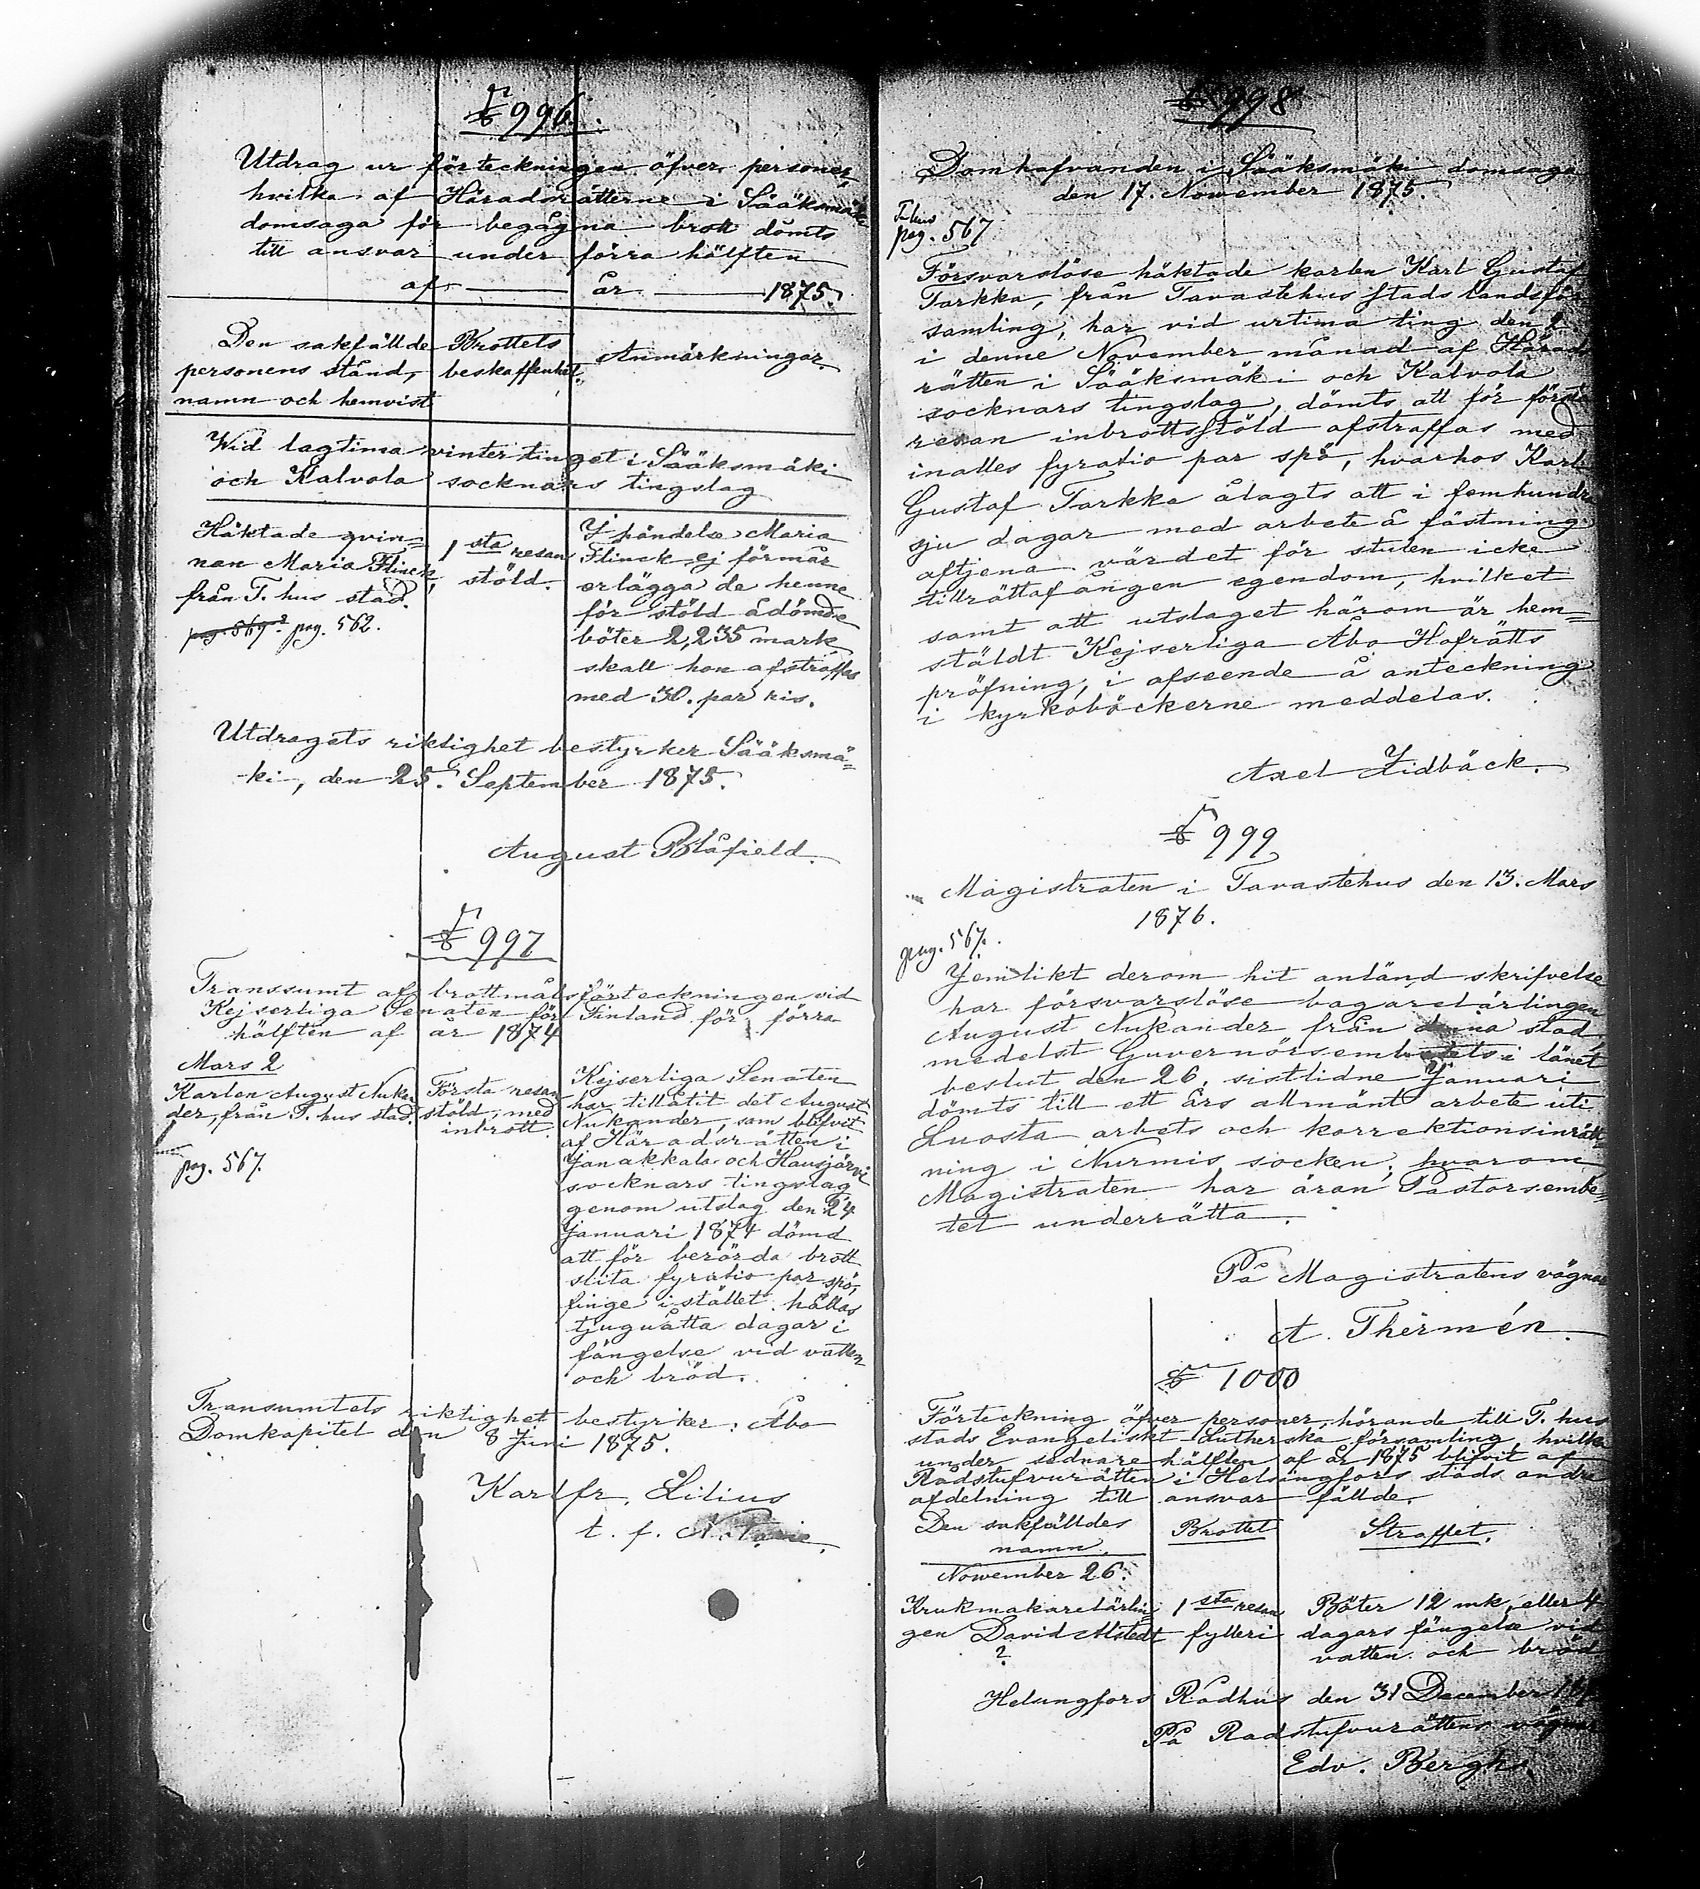 № 996.
Utdrag ur förteckningen öfver personer,
hvilka af Häradsrätterne i Sääksmäki
domsaga för begågna brott dömts
till ansvar under förra hälften
af — år — 1875.
Den sakfällde
personens stånd,
namn och hemvist
Brottets
beskaffenhet.
Anmärkningar.
Wid lagtima vintertinget i Sääksmäki
och Kalvola socknars tingslag
Häktade qvin=
nan Maria Flinck,
från T. hus stad.
pag. 562.
1 sta resan
stöld.
I händelse Maria
Flinck ej förmår
erlägga de henne
för stöld ådömde
böter 2,235 mark
skall hon afstraffas
med 30. par ris.
Utdragets riktighet bestyrker Sääksmä=
ki, den 25. September 1875.
August Blåfield.
№ 997
Transsumt af brottmålsförteckningen vid
Kejserliga Senaten för Finland för förra
hälften af år 1874
Mars 2
Karlen August Nukan
der, från T. hus stad.
pag. 567.
Första resan
stöld, med
inbrott.
Kejserliga Senaten
har tillåtit det August
Nukander, som blifvit
af Häradsrätten i
Janakkala och Hausjärvi
socknars tingslag
genom utslag den 24
Januari 1874 dömd
att för berörda brott
slita fyratio par spö,
finge i stället hållas
tjuguåtta dagar i
fängelse vid vatten
och bröd.
Transumtets riktighet bestyrker: Åbo
Domkapitel den 8 Juni 1875.
Karl fr. Lilius
t. f. Notarie.
№ 998
Domhafvanden i Sääksmäki domsaga
den 17. November 1875.
T hus
pag. 567
Försvarslöse häktade karlen Karl Gustaf
Tarkka, från Tavastehus stads landsför
samling, har vid urtima ting den 2
i denne November månad af Härads
rätten i Sääksmäki och Kalvola
socknars tingslag, dömts att för första
resan inbrottsstöld afstraffas med
inalles fyratio par spö, hvarhos Karl
Gustaf Tarkka ålagts att i femhundra
sju dagar med arbete å fästning
aftjena värdet för stulen icke
tillrättafången egendom, hvilket
samt att utslaget härom är hem=
stäldt Kejserliga Åbo Hofrätts
pröfning, i afseende å anteckning
i kyrkoböckerne meddelas.
Axel Lidbäck.
№ 999
Magistraten i Tavastehus den 13. Mars
1876.
pag. 567.
Jemlikt derom hit anländ skrifvelse
har försvarslöse bagarelärlingen
August Nukander från denna stad,
medelst Guvernörsembetets i länet
beslut den 26. sistlidne Januari
dömts till ett års allmänt arbete uti
Luosta arbets och korrektionsinrätt=
ning i Nurmis socken; hvarom
Magistraten har äran Pastorsembe=
tet underrätta.
På Magistratens vägnar
A. Thermén.
№ 1000
Förteckning öfver personer, hörande till T. hus
stads Evangeliskt Lutherska församling, hvilka
under sednare hälften af år 1875 blifvit af
Rådstufvurätten i Helsingfors stads andra
afdelning till ansvar fällde.
Den sakfälldes
namn.
Brottet
Straffet.
November 26.
Krukmakarelärlin
gen David Alstedt
?
1 sta resan
fylleri
Böter 12 mk, eller 4
dagars fängelse vid
vatten och bröd
Helsingfors Rådhus den 31 December
På Radstufvurättens vägnar
Edv. Bergh.